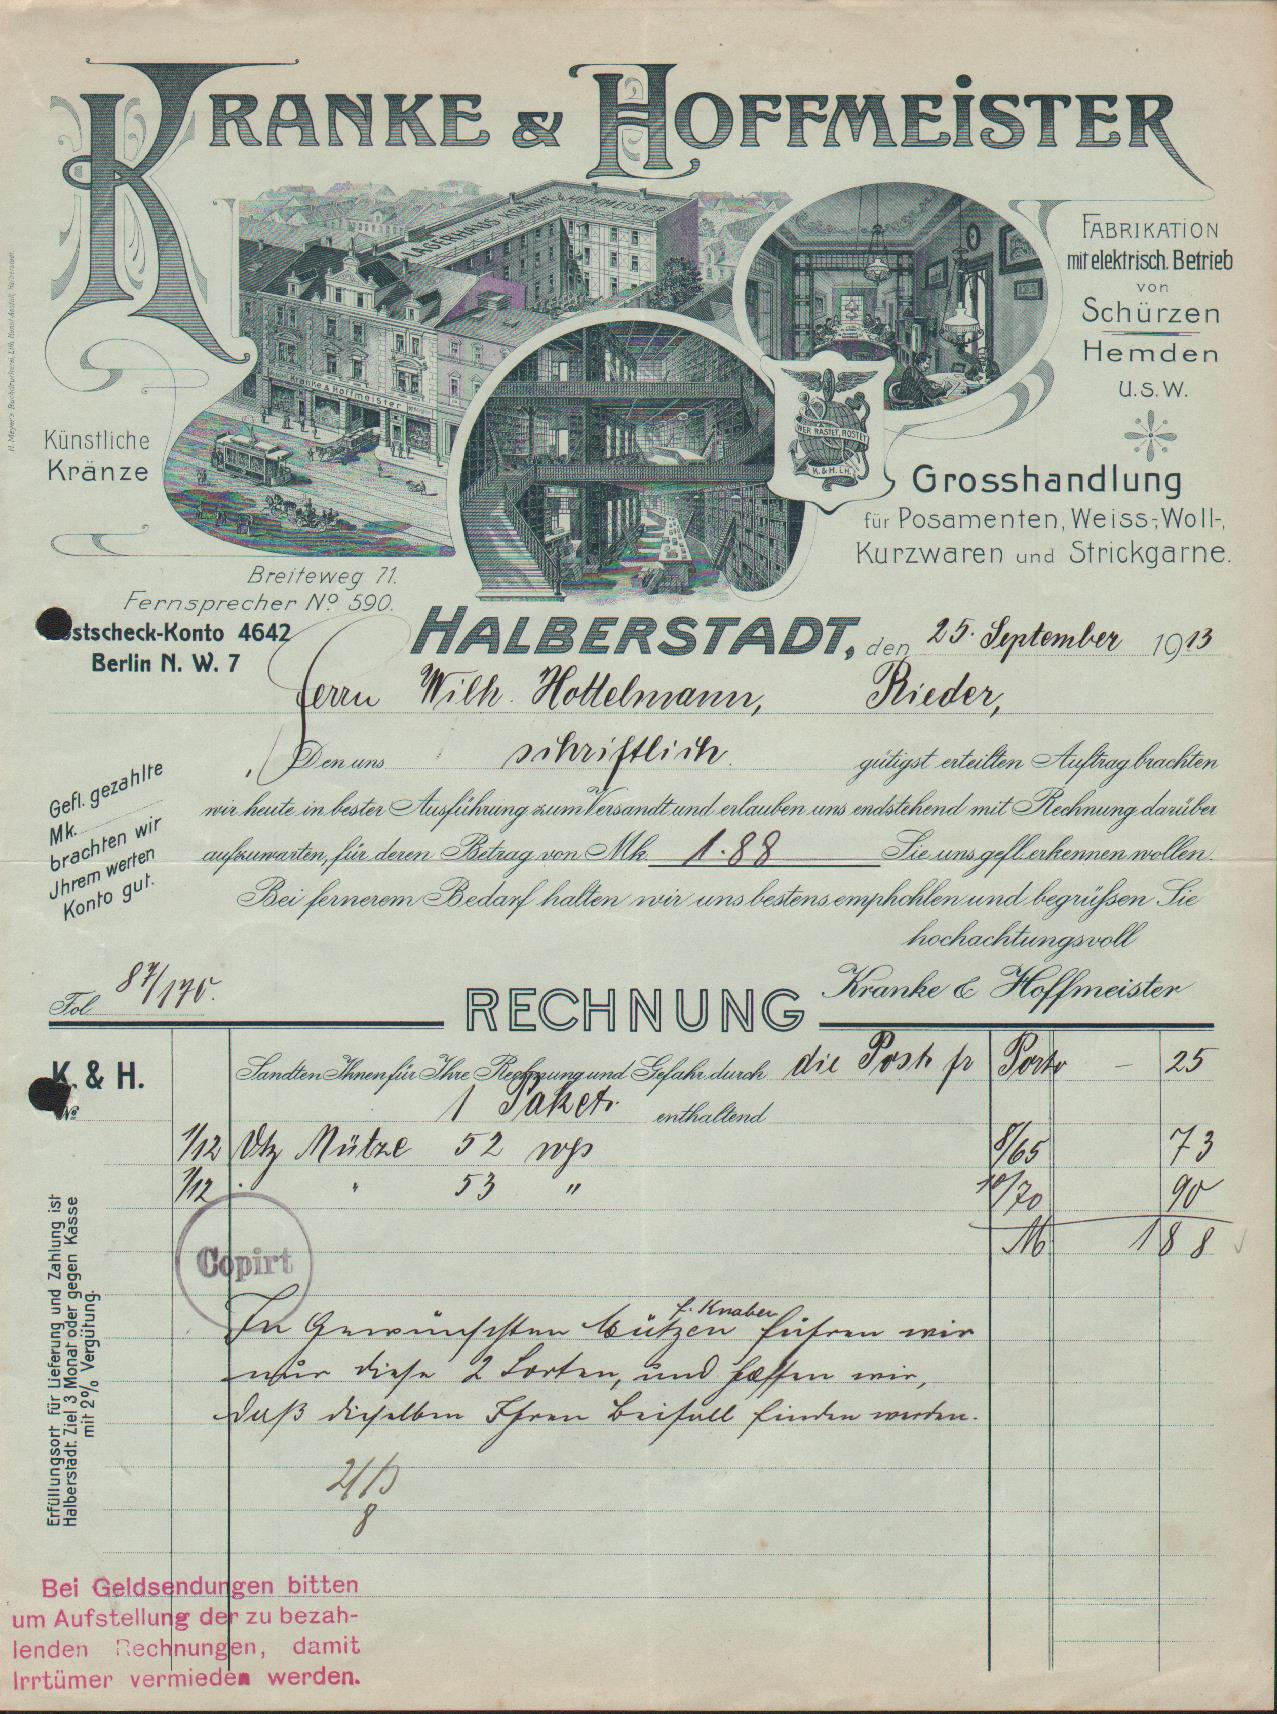 KRANKE & HOFFMEISTER
LAGERHAUS KRANKE & HOFFMEISTER
Kranke & Hoffmeister
WER RASTET, ROSTET
K. & H. i. H.
FABRIKATION
mit elektrisch. Betrieb
von
Schürzen
Hemden
U.S.W.
Künstliche
Kränze
Grosshandlung
für Posamenten, Weiss-, Woll-,
Kurzwaren und Strickgarne.
Breiteweg 71.
Fernsprecher No 590.
Postscheck-Konto 4642
Berlin N. W. 7
HALBERSTADT, den 25. September 1913
Herrn Wilh. Hottelmann, Rieder,
Den uns schriftlich. gütigst erteilten Auftrag brachten
wir heute in bester Ausführung zum Versandt und erlauben uns endstehend mit Rechnung darüber
aufzuwarten, für deren Betrag von Mk. 1.88 Sie uns gefl. erkennen wollen.
Bei fernerem Bedarf halten wir uns bestens empfohlen und begrüßen Sie
hochachtungsvoll
Kranke & Hoffmeister
Gefl. gezahlte
Mk.
brachten wir
Jhrem werten
Konto gut.
Fol 87/170.
RECHNUNG
K. & H.
No
Sandten Ihnen für Ihre Rechnung und Gefahr durch die Post pr Porto — 25
1 Paket. enthaltend
1/12 Dtz Mütze 52 wgs 8/65 73
1/12 " " 53 " 10/70 90
M 1 88
Copirt
In Gewünschten Mützen f. Knaben führen wir
nur diese 2 Sorten, und hoffen wir,
daß dieselben Ihren Beifall finden werden.
8
Erfüllungsort für Lieferung und Zahlung ist
Halberstadt. Ziel 3 Monat oder gegen Kasse
mit 2% Vergütung.
Bei Geldsendungen bitten
um Aufstellung der zu bezah-
lenden Rechnungen, damit
Irrtümer vermieden werden.